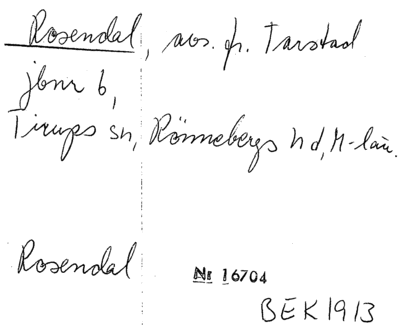 Rosendal, avs. fr. Tarstad
jbnr 6,
Tirups sn, Rönnebergs hd, M-län.
Rosendal
Nr 16704
BEK 1913